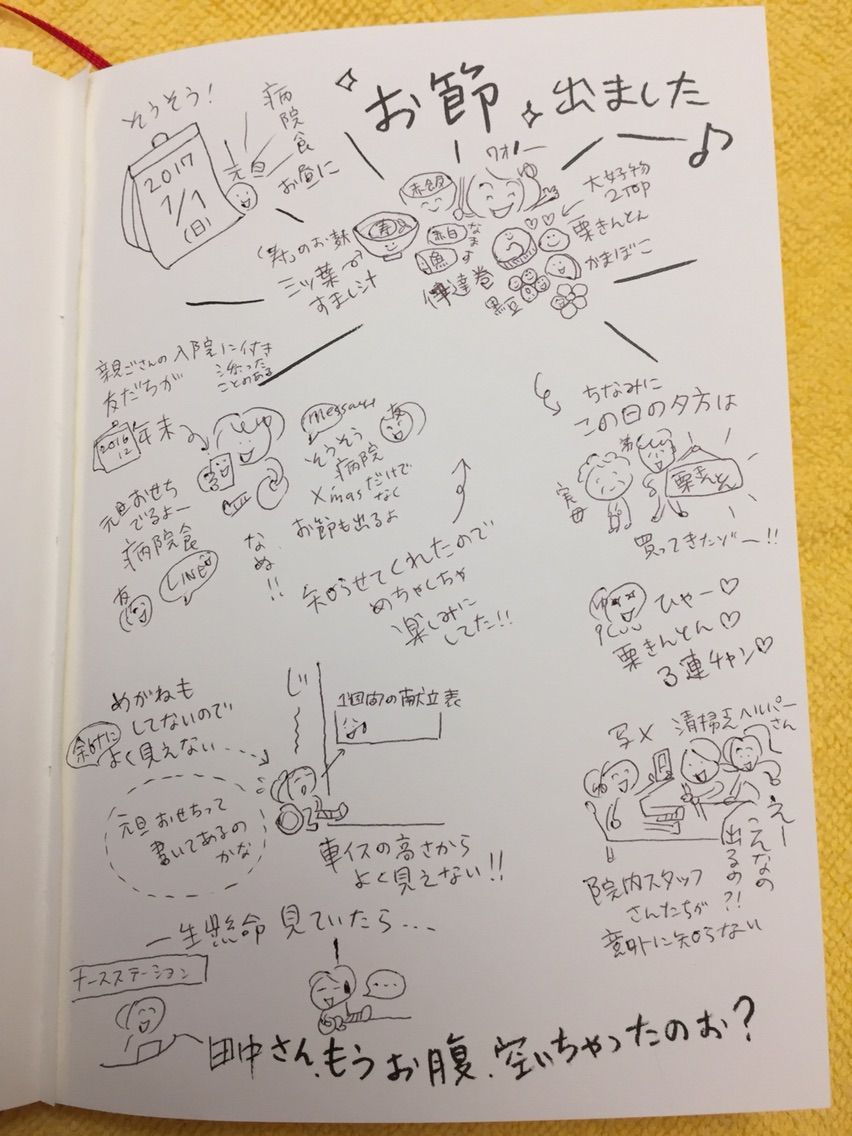 お節出ました
そうそう!
2017
1/1
(日)
元旦
病院食
お昼に
ワオー
赤飯
大好物
2TOP
栗きんとん
かまぼこ
紅白
なます
魚
伊達巻
黒豆
寿
「寿」のお麩
三ッ葉
すまし汁
親ごさんの入院に付き
添った
ことのある
友だちが
2016
12
年末
元旦おせち
でるよー
病院食
友
LINE
なぬ!!
message
友
そうそう
病院
Xmasだけで
なく
お節も出るよ
知らせてくれたので
めちゃくちゃ
楽しみに
してた!!
ちなみに
この日の夕方は
実母
弟
栗きんとん
買ってきたゾー!!
ひゃー♡
栗きんとん♡
3連チャン♡
めがねも
してないので
余計に
よく見えない…
元旦おせちって
書いてあるの
かな
じ〜
1週間の献立表
車イスの高さから
よく見えない!!
写メ
清掃さん
ヘルパーさん
えー
こんなの
出るの?!
院内スタッフ
さんたちが
意外に知らない
一生懸命 見ていたら…
ナースステーション
…
田中さん、もうお腹、空いちゃったのぉ?